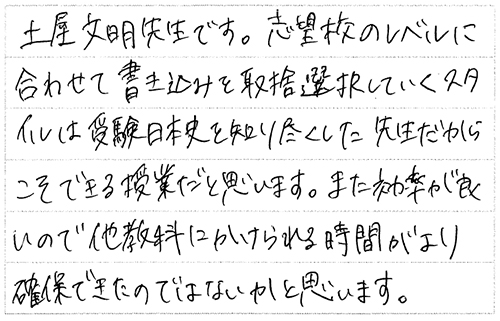 土屋文明先生です。志望校のレベルに
合わせて書き込みを取捨選択していくスタ
イルは受験日本史を知り尽くした先生だから
こそできる授業だと思います。また効率が良
いので他教科にかけられる時間がより
確保できたのではないかと思います。